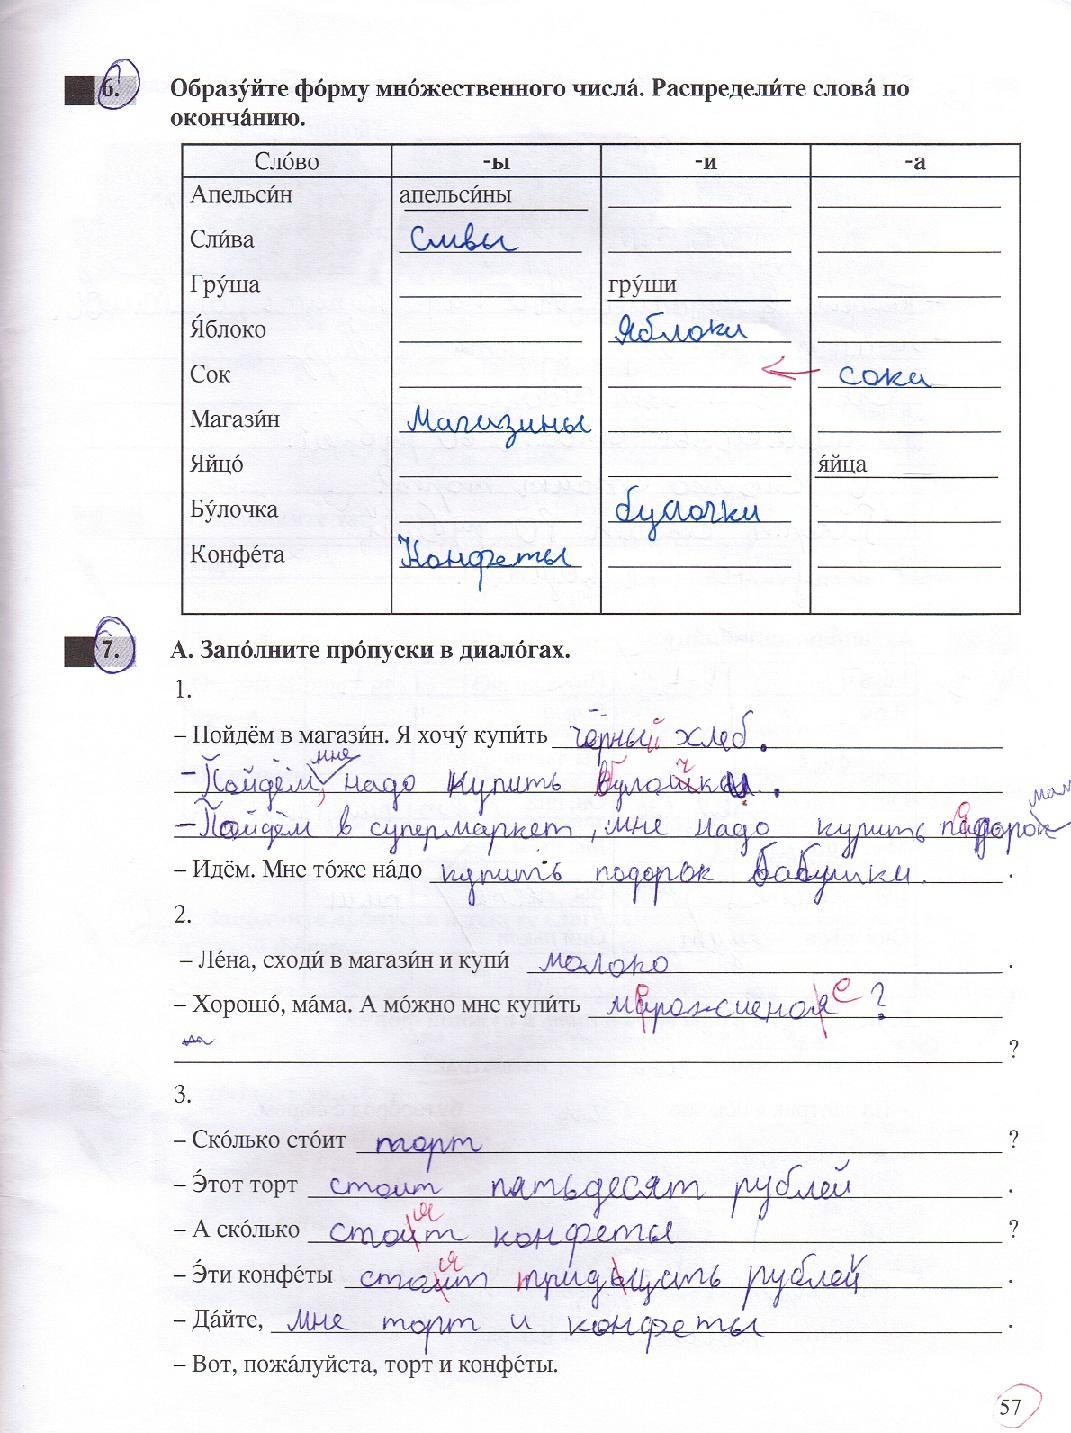 6. Образу́йте фо́рму мно́жественного числа́. Распредели́те слова́ по
оконча́нию.
Сло́во -ы -и -а
Апельси́н апельси́ны
Сли́ва Сливы
Гру́ша гру́ши
Я́блоко Яблоки
Сок соки
Магази́н Магазины
Яйцо́ я́йца
Бу́лочка булочки
Конфе́та Конфеты
7. А. Запо́лните про́пуски в диало́гах.
1.
– Пойдём в магази́н. Я хочу́ купи́ть чёрный хлеб.
мне
– Пойдём, надо купить булочки.
– Пойдём в супермаркет, мне надо купить подарок
– Идём. Мне то́же на́до купить подорок бабушки.
2.
– Ле́на, сходи́ в магази́н и купи́ молоко.
– Хорошо́, ма́ма. А мо́жно мне купи́ть мороженое?
?
3.
– Ско́лько сто́ит торт?
– Э́тот торт стоит пятьдесят рублей.
– А ско́лько стоят конфеты?
– Э́ти конфе́ты стоят тридцать рублей.
– Да́йте, мне торт и конфеты.
– Вот, пожа́луйста, торт и конфе́ты.
57